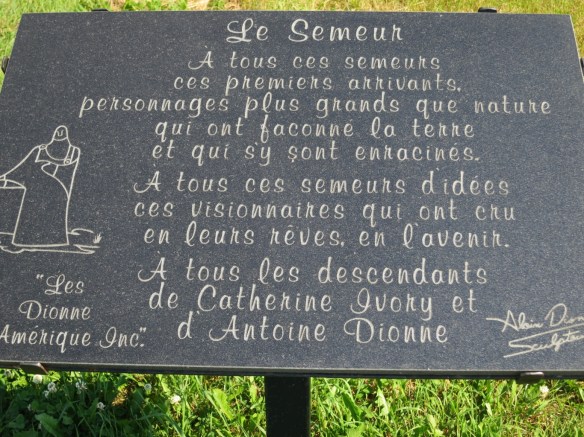 Le Semeur
À tous ces semeurs
ces premiers arrivants,
personnages plus grands que nature
qui ont façonné la terre
et qui s'y sont enracinés.
À tous ces semeurs d'idées
ces visionnaires qui ont cru
en leurs rêves, en l'avenir.
À tous les descendants
de Catherine Ivory et
d'Antoine Dionne
"Les
Dionne
Amérique Inc."
Alain Dionne
Sculpteur